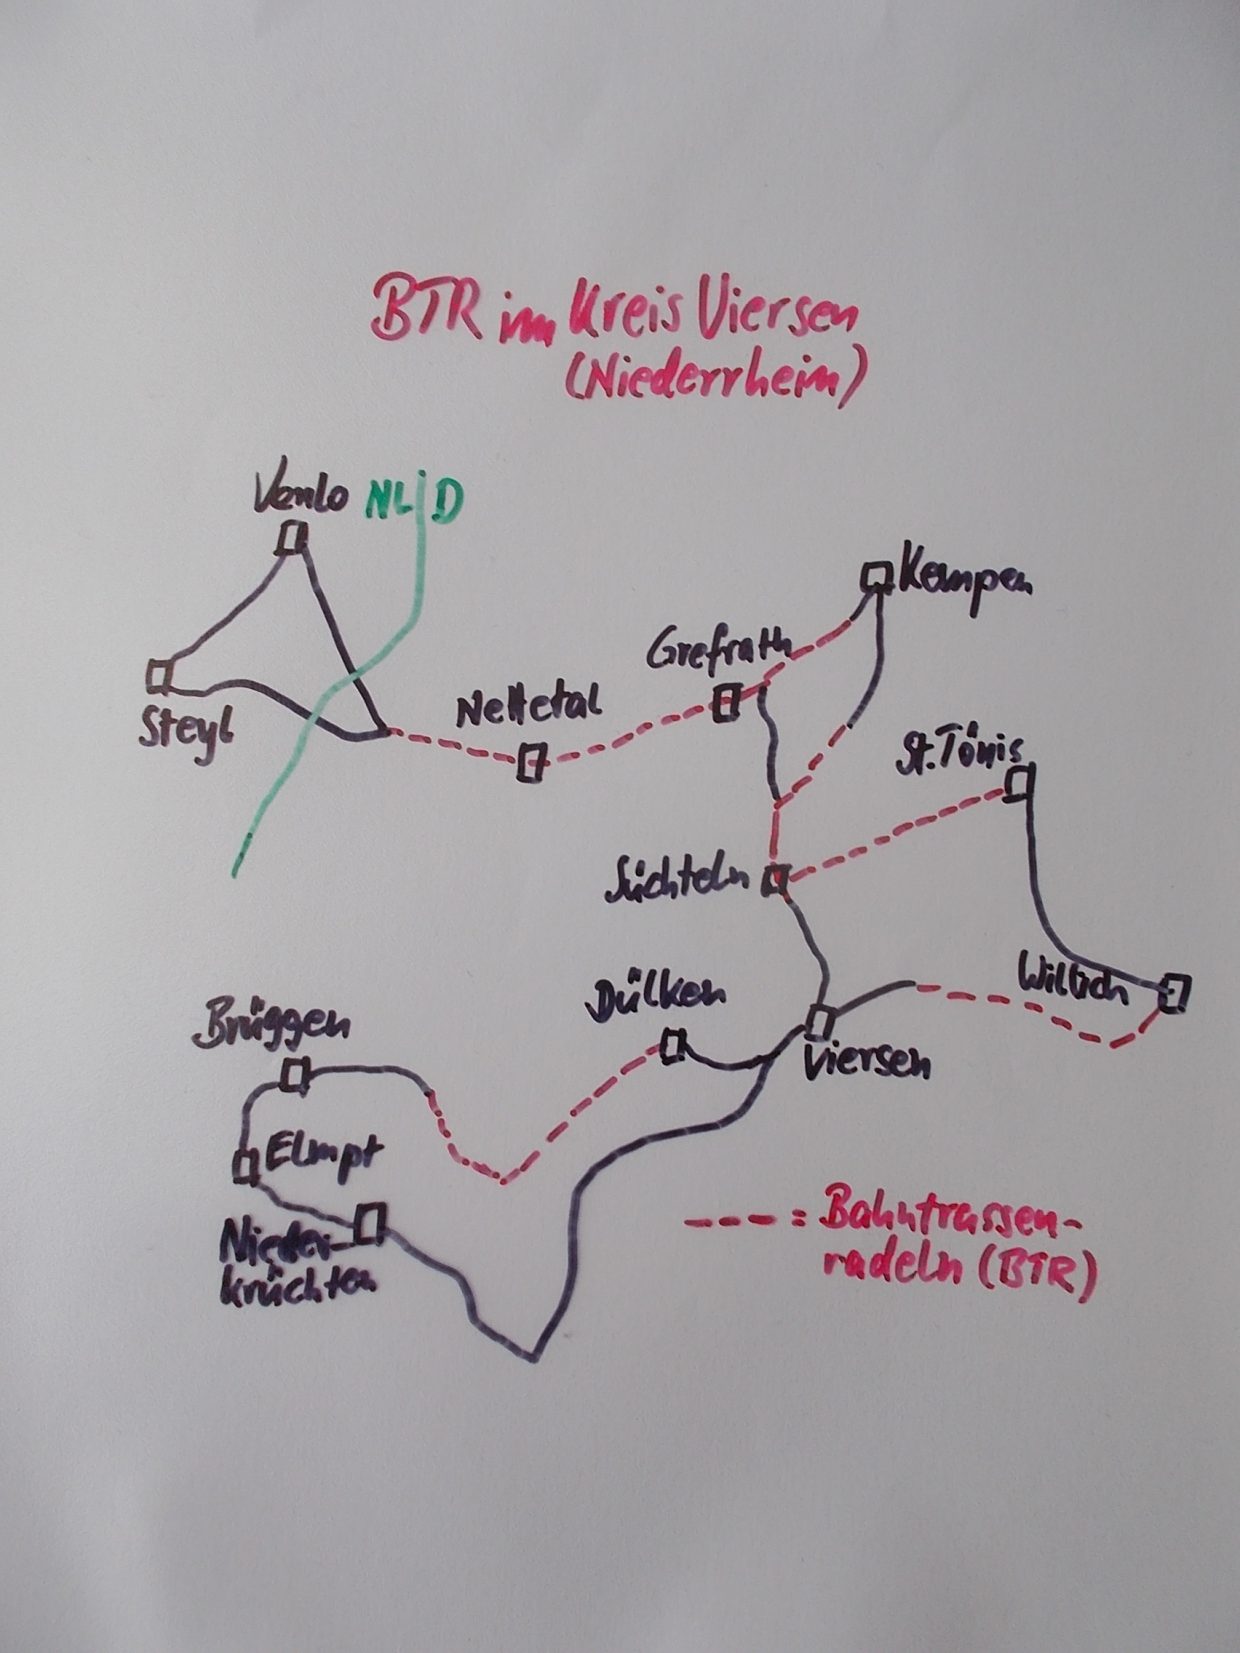 BTR im Kreis Viersen
(Niederrhein)
Venlo NL D
Kempen
Grefrath
Nettetal
Steyl
St. Tönis
Süchteln
Willich
Dülken
Brüggen
Viersen
Elmpt
Nieder-
krüchten
--- = Bahntrassen-
radeln (BTR)